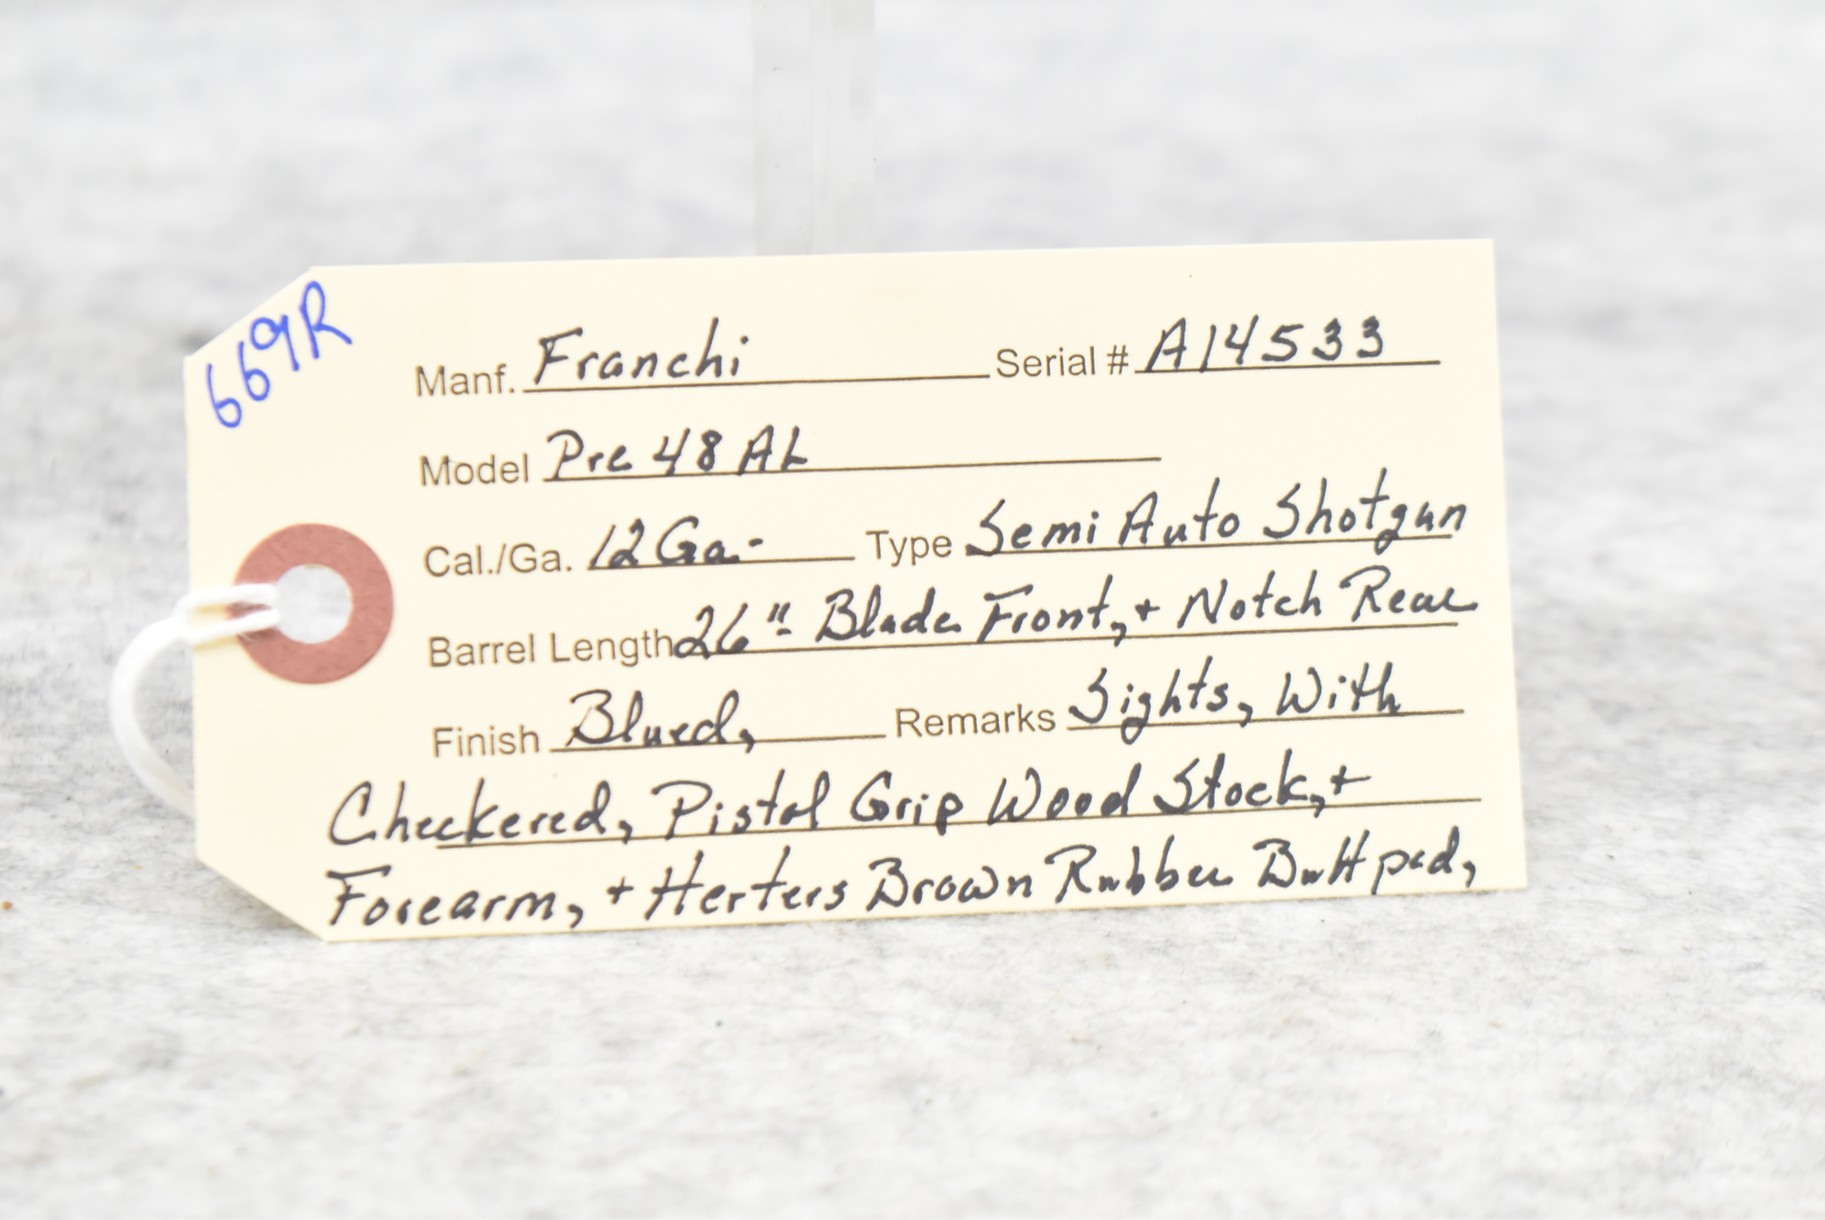 669R
Manf. Franchi Serial # A14533
Model Pre 48 AL
Cal./Ga. 12 Ga. Type Semi Auto Shotgun
Barrel Length 26" Blade Front, + Notch Rear
Finish Blued, Remarks Sights, With
Checkered, Pistol Grip Wood Stock, +
Forearm, + Herters Brown Rubber Buttpad,